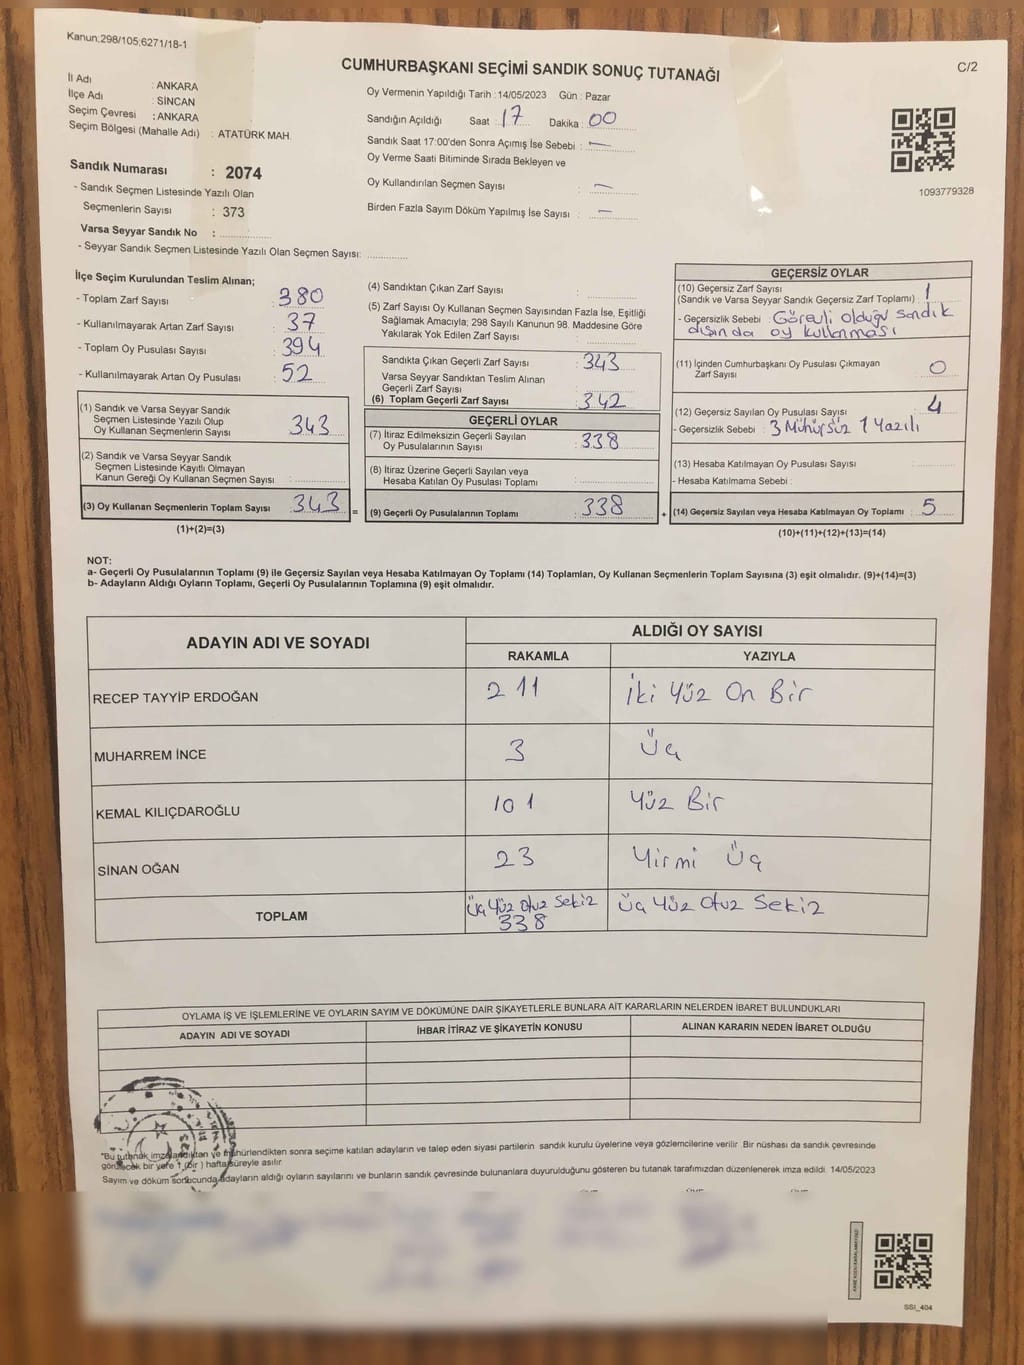 Kanun;298/105;6271/18-1
C/2
CUMHURBAŞKANI SEÇİMİ SANDIK SONUÇ TUTANAĞI
İl Adı : ANKARA
İlçe Adı : SİNCAN
Seçim Çevresi : ANKARA
Seçim Bölgesi (Mahalle Adı) : ATATÜRK MAH.
Sandık Numarası : 2074
- Sandık Seçmen Listesinde Yazılı Olan
Seçmenlerin Sayısı : 373
Varsa Seyyar Sandık No :
- Seyyar Sandık Seçmen Listesinde Yazılı Olan Seçmen Sayısı:
Oy Vermenin Yapıldığı Tarih : 14/05/2023 Gün : Pazar
Sandığın Açıldığı Saat : 17 Dakika : 00
Sandık Saat 17:00'den Sonra Açımış İse Sebebi : —
Oy Verme Saati Bitiminde Sırada Bekleyen ve
Oy Kullandırılan Seçmen Sayısı : —
Birden Fazla Sayım Döküm Yapılmış İse Sayısı : —
1093779328
İlçe Seçim Kurulundan Teslim Alınan;
- Toplam Zarf Sayısı : 380
- Kullanılmayarak Artan Zarf Sayısı : 37
- Toplam Oy Pusulası Sayısı : 394
- Kullanılmayarak Artan Oy Pusulası : 52
(1) Sandık ve Varsa Seyyar Sandık
Seçmen Listesinde Yazılı Olup
Oy Kullanan Seçmenlerin Sayısı : 343
(2) Sandık ve Varsa Seyyar Sandık
Seçmen Listesinde Kayıtlı Olmayan
Kanun Gereği Oy Kullanan Seçmen Sayısı :
(3) Oy Kullanan Seçmenlerin Toplam Sayısı : 343 =
(1)+(2)=(3)
(4) Sandıktan Çıkan Zarf Sayısı :
(5) Zarf Sayısı Oy Kullanan Seçmen Sayısından Fazla İse, Eşitliği
Sağlamak Amacıyla, 298 Sayılı Kanunun 98. Maddesine Göre
Yakılarak Yok Edilen Zarf Sayısı :
Sandıkta Çıkan Geçerli Zarf Sayısı : 343
Varsa Seyyar Sandıktan Teslim Alınan
Geçerli Zarf Sayısı :
(6) Toplam Geçerli Zarf Sayısı : 342
GEÇERLİ OYLAR
(7) İtiraz Edilmeksizin Geçerli Sayılan
Oy Pusulalarının Sayısı : 338
(8) İtiraz Üzerine Geçerli Sayılan veya
Hesaba Katılan Oy Pusulası Toplamı :
(9) Geçerli Oy Pusulalarının Toplamı : 338 +
GEÇERSİZ OYLAR
(10) Geçersiz Zarf Sayısı
(Sandık ve Varsa Seyyar Sandık Geçersiz Zarf Toplamı) : 1
- Geçersizlik Sebebi : Görevli olduğu sandık
dışında oy kullanması
(11) İçinden Cumhurbaşkanı Oy Pusulası Çıkmayan
Zarf Sayısı : 0
(12) Geçersiz Sayılan Oy Pusulası Sayısı : 4
- Geçersizlik Sebebi : 3 Mühürsüz 1 Yazılı
(13) Hesaba Katılmayan Oy Pusulası Sayısı :
- Hesaba Katılmama Sebebi :
(14) Geçersiz Sayılan veya Hesaba Katılmayan Oy Toplamı : 5
(10)+(11)+(12)+(13)=(14)
NOT:
a- Geçerli Oy Pusulalarının Toplamı (9) ile Geçersiz Sayılan veya Hesaba Katılmayan Oy Toplamı (14) Toplamları, Oy Kullanan Seçmenlerin Toplam Sayısına (3) eşit olmalıdır. (9)+(14)=(3)
b- Adayların Aldığı Oyların Toplamı, Geçerli Oy Pusulalarının Toplamına (9) eşit olmalıdır.
ADAYIN ADI VE SOYADI
ALDIĞI OY SAYISI
RAKAMLA YAZIYLA
RECEP TAYYİP ERDOĞAN 211 İki Yüz On Bir
MUHARREM İNCE 3 Üç
KEMAL KILIÇDAROĞLU 101 Yüz Bir
SİNAN OĞAN 23 Yirmi Üç
TOPLAM Üç Yüz Otuz Sekiz 338 Üç Yüz Otuz Sekiz
OYLAMA İŞ VE İŞLEMLERİNE VE OYLARIN SAYIM VE DÖKÜMÜNE DAİR ŞİKAYETLERLE BUNLARA AİT KARARLARIN NELERDEN İBARET BULUNDUKLARI
ADAYIN ADI VE SOYADI İHBAR İTİRAZ VE ŞİKAYETİN KONUSU ALINAN KARARIN NEDEN İBARET OLDUĞU
"Bu tutanak imzalandıktan ve mühürlendikten sonra seçime katılan adayların ve talep eden siyasi partilerin sandık kurulu üyelerine veya gözlemcilerine verilir. Bir nüshası da sandık çevresinde
görülecek bir yere 1 (bir) hafta süreyle asılır
Sayım ve döküm sonucunda adayların aldığı oyların sayılarını ve bunların sandık çevresinde bulunanlara duyurulduğunu gösteren bu tutanak tarafımızdan düzenlenerek imza edildi. 14/05/2023
SSI_404